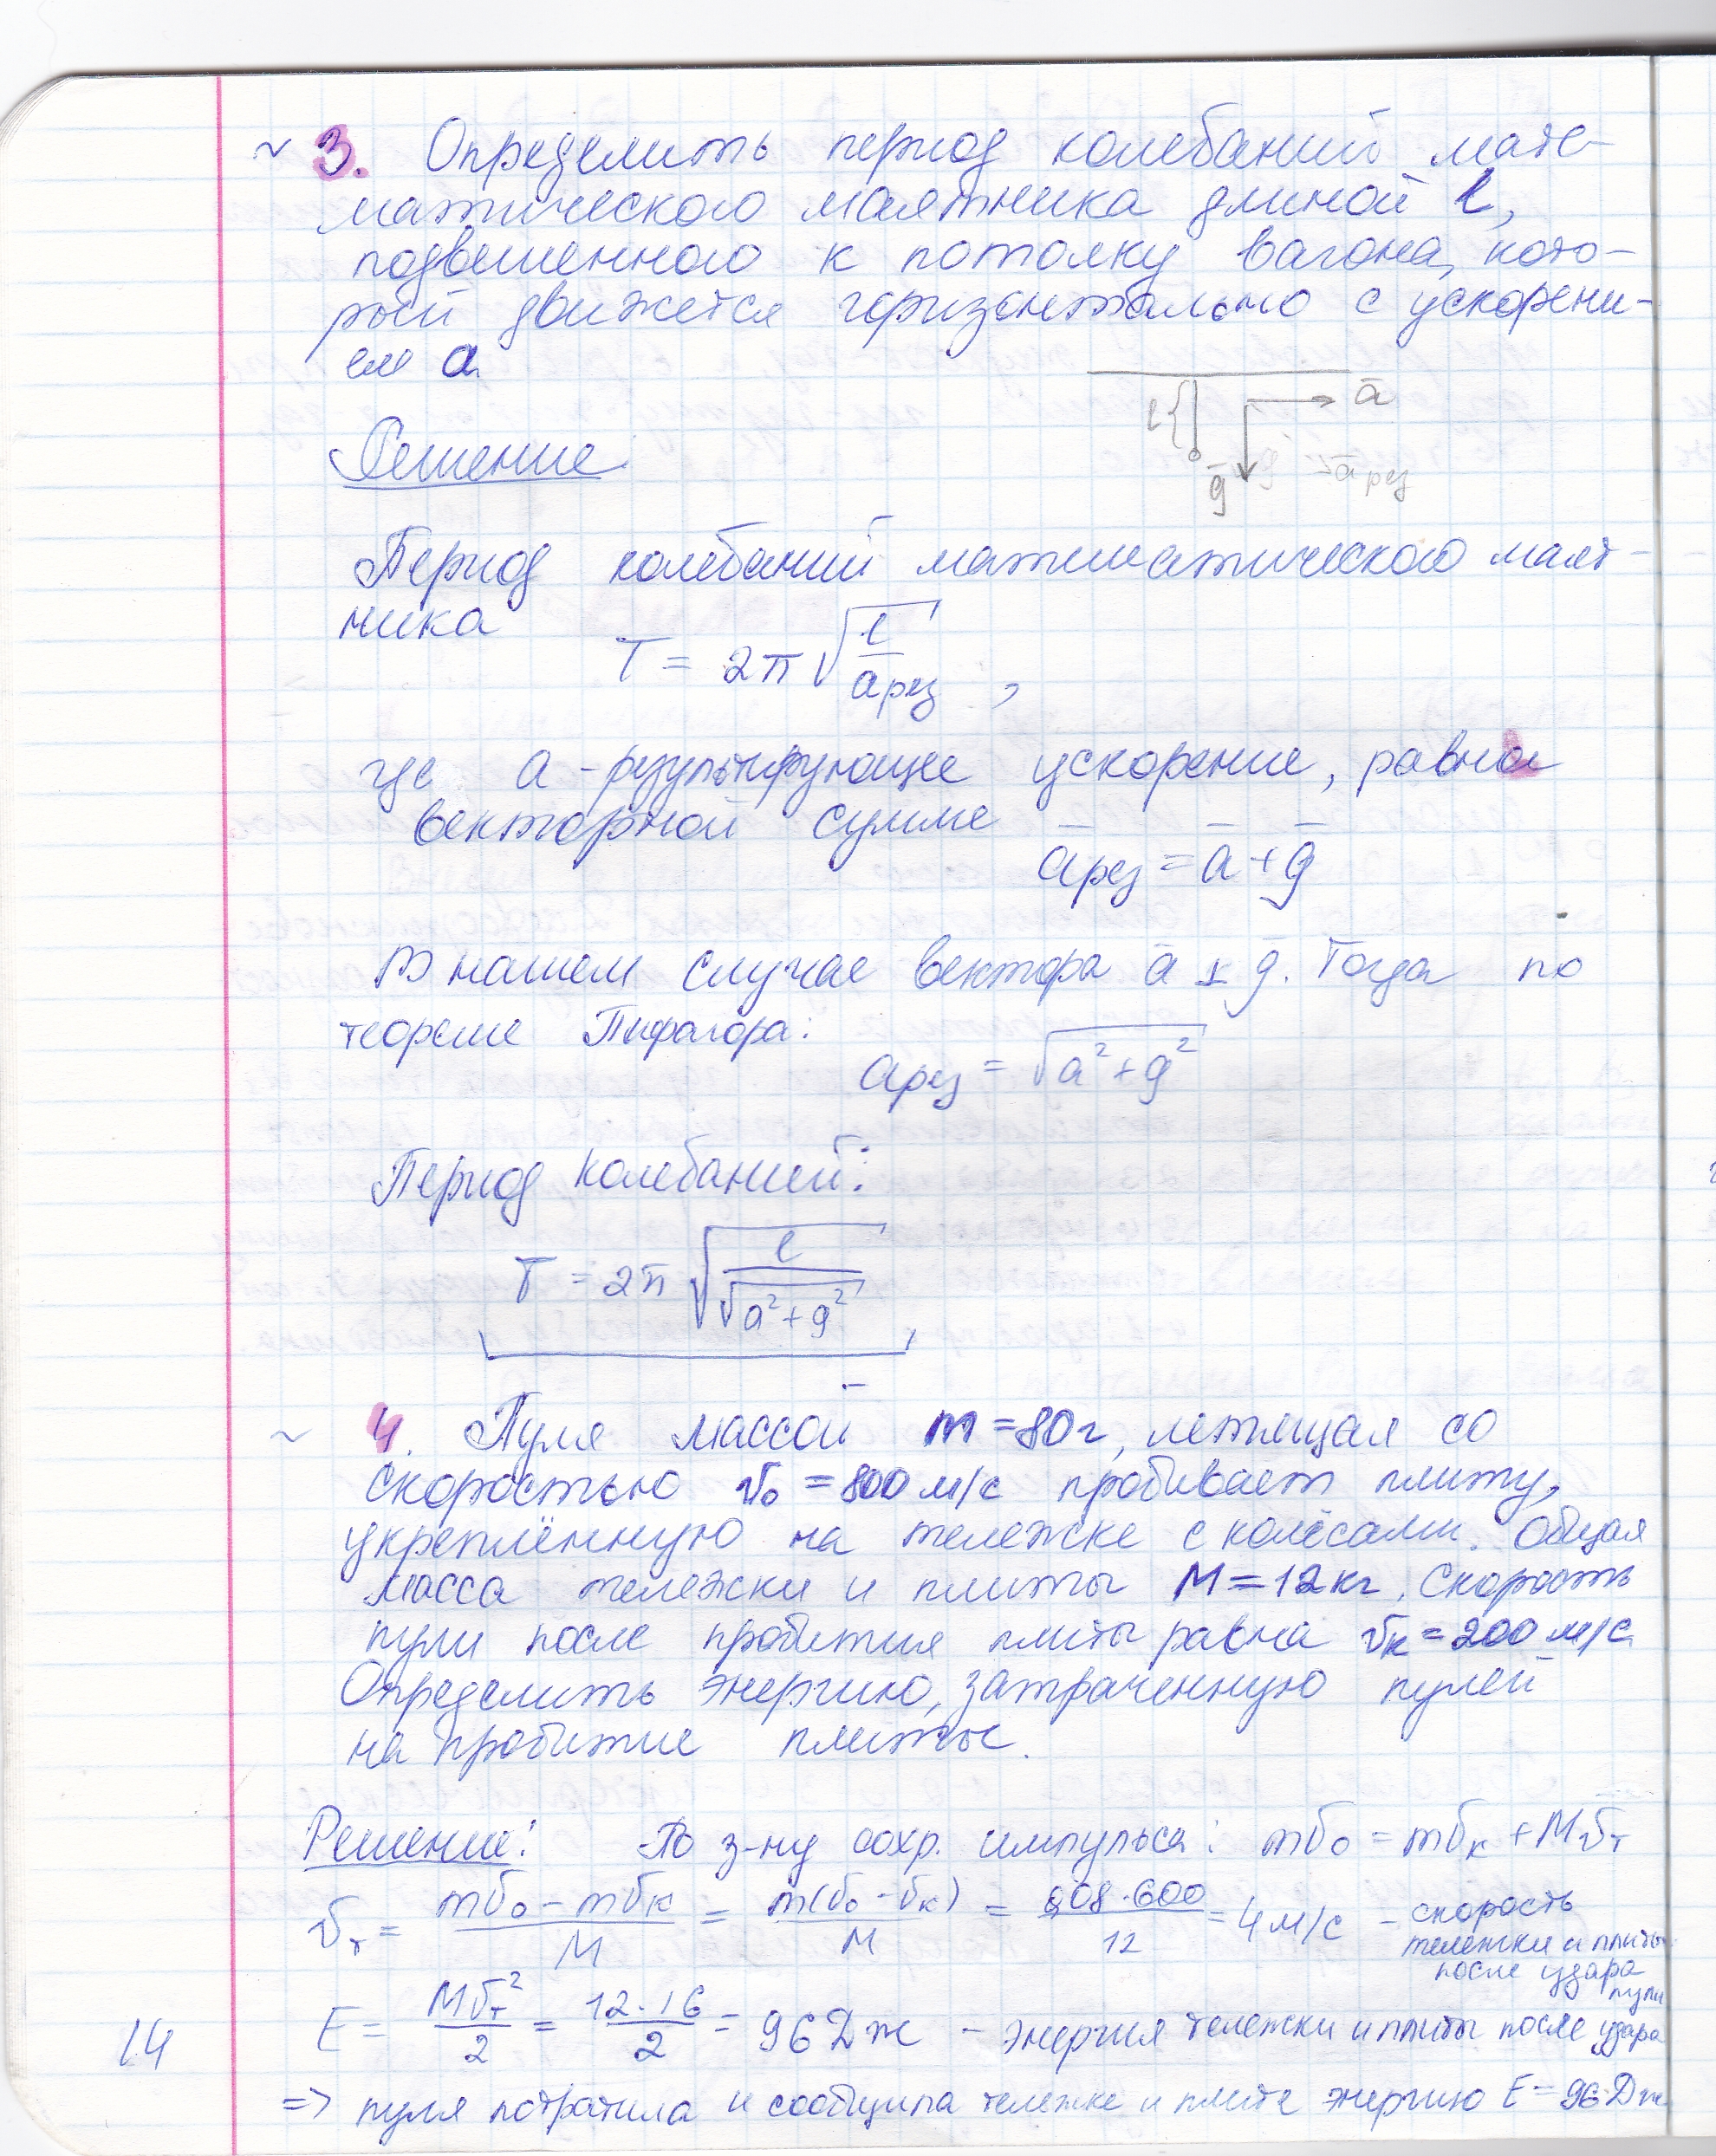 ~ 3. Определить период колебаний мате-
матического маятника длиной l,
подвешенного к потолку вагона, кото-
рый движется горизонтально с ускорени-
ем a
l { a̅
g̅ a̅ рез
Решение
Период колебаний математического маят-
ника
T = 2π √(l / aрез) ,
где a - результирующее ускорение, равно
векторной сумме
a̅рез = a̅ + g̅
В нашем случае вектора a̅ ⊥ g̅. Тогда по
теореме Пифагора:
aрез = √(a² + g²)
Период колебаний:
T = 2π √(l / √(a² + g²))
~ 4. Пуля массой m = 80г, летящая со
скоростью v₀ = 800 м/с пробивает плиту,
укреплённую на тележке с колёсами. Общая
масса тележки и плиты M = 12кг. Скорость
пули после пробития плиты равна vк = 200 м/с
Определить энергию, затраченную пулей
на пробитие плиты.
Решение: По з-ну сохр. импульса: mv₀ = mvк + Mvт
vт = (mv₀ - mvк) / M = m(v₀ - vк) / M = 0,08·600 / 12 = 4 м/с - скорость
тележки и плиты
после удара
пули
E = Mvт² / 2 = 12·16 / 2 = 96 Дж - энергия тележки и плиты после удара
14
=> пуля потратила и сообщила тележке и плите энергию E = 96 Дж